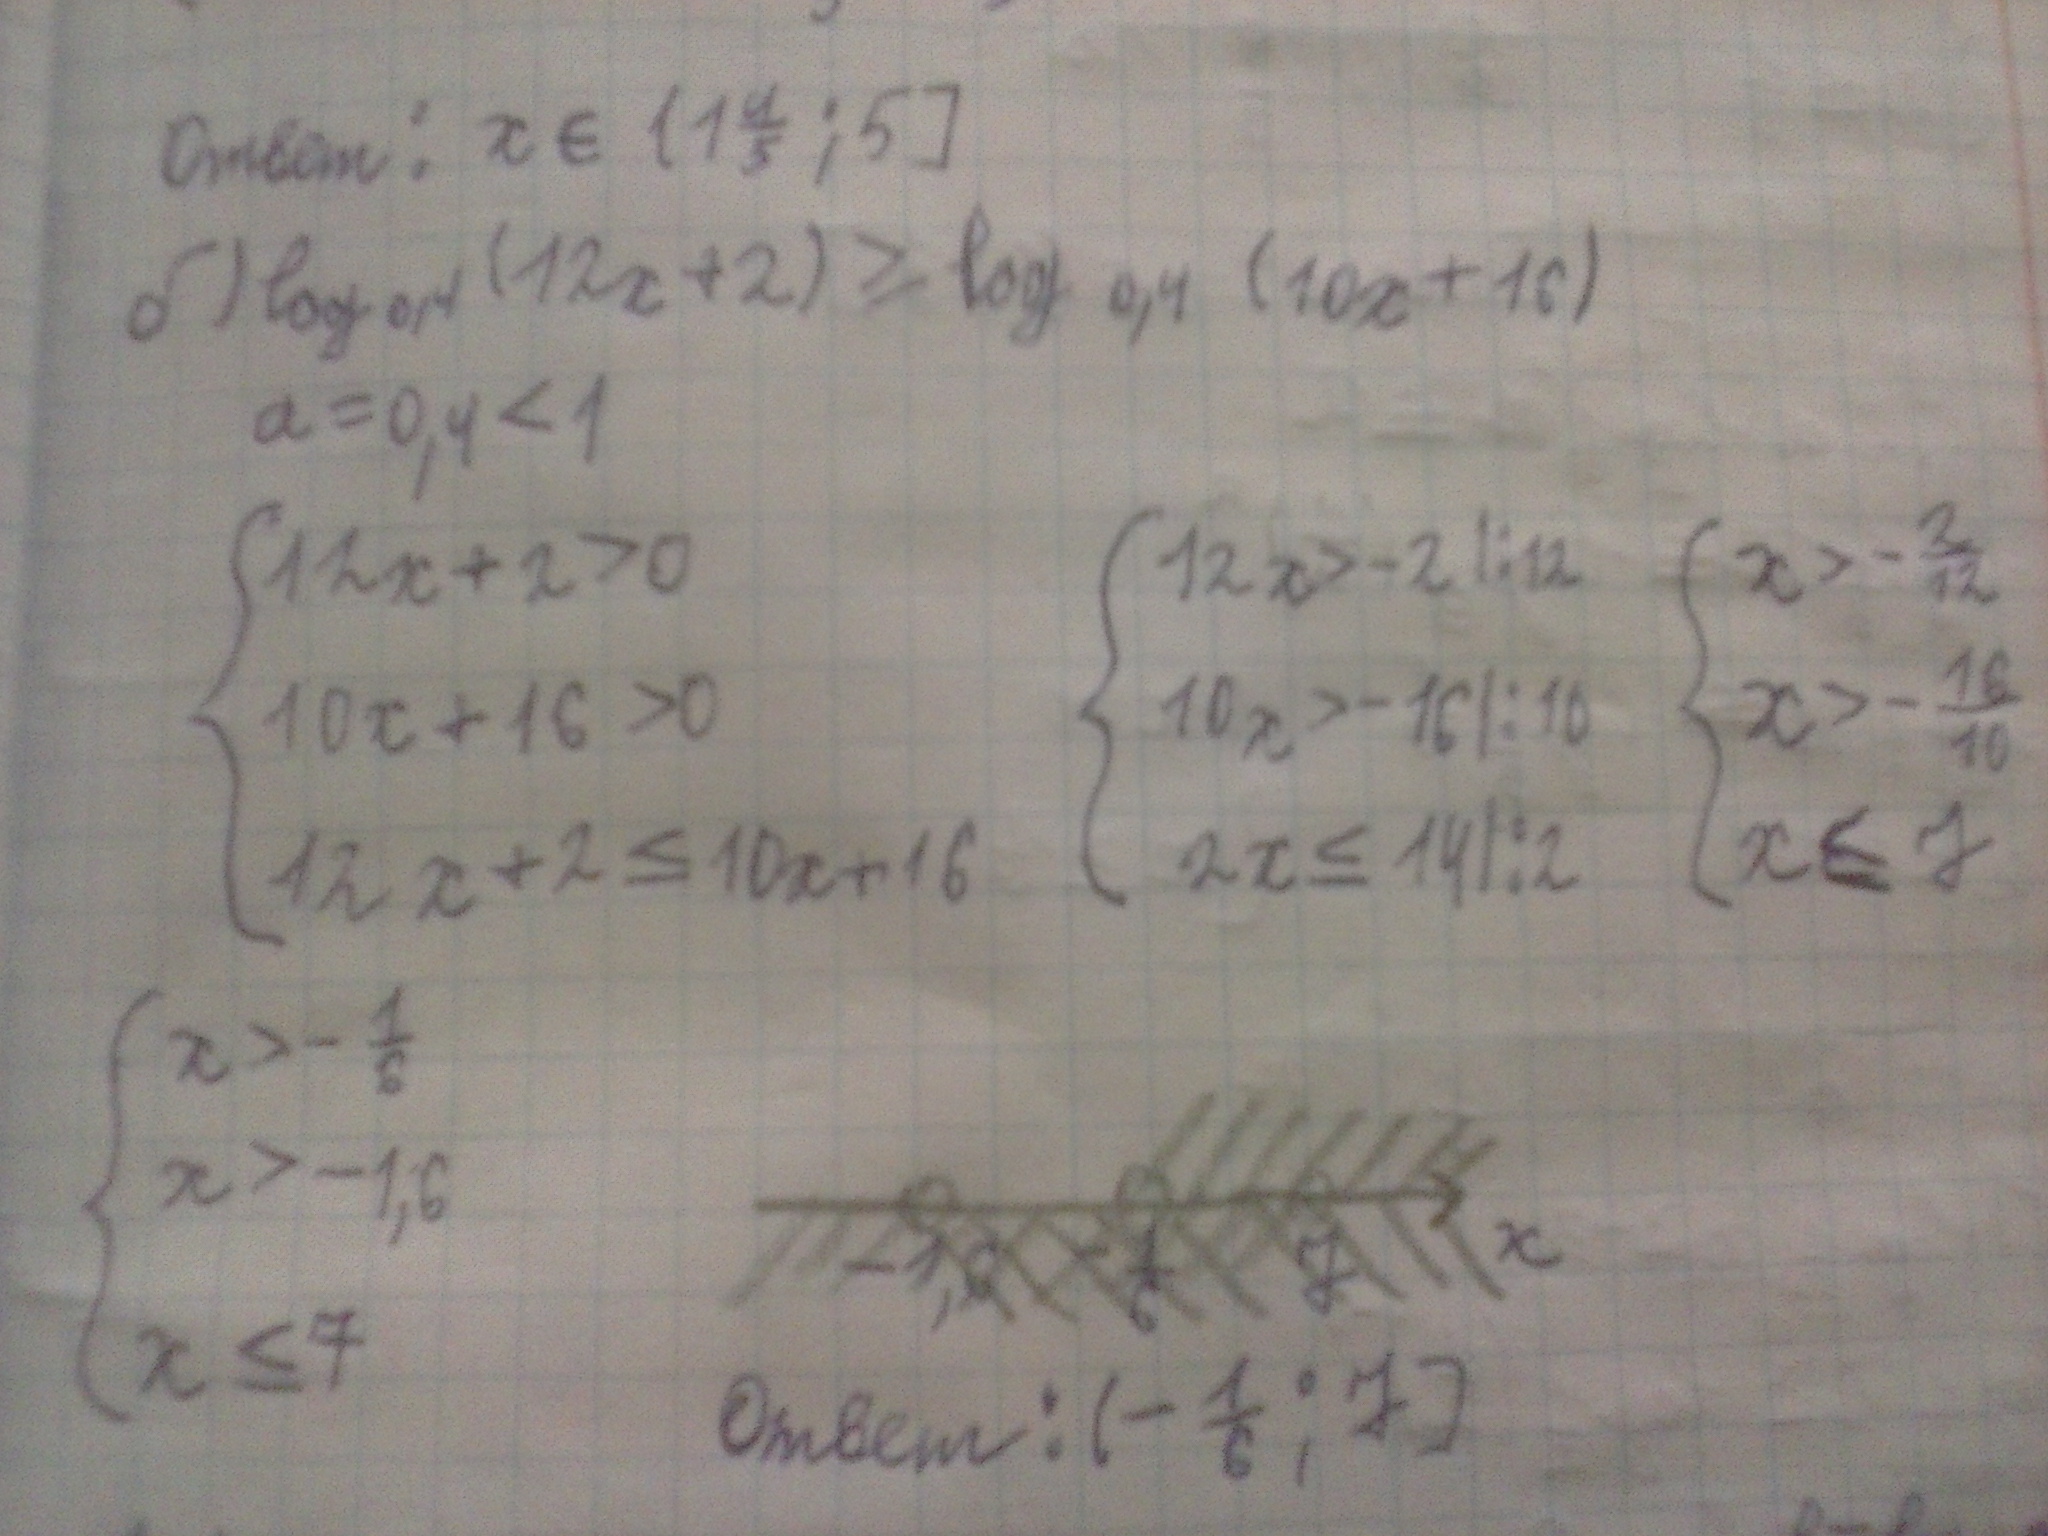 Ответ: x ∈ (1 4/5; 5]
б) log 0,4 (12x+2) ≥ log 0,4 (10x+16)
a = 0,4 < 1
{ 12x+2>0 { 12x>-2 |:12 { x>-2/12
10x+16>0 10x>-16 |:10 x>-16/10
12x+2 ≤ 10x+16 2x ≤ 14 |:2 x ≤ 7
{ x>-1/6
x>-1,6
x ≤ 7
-1,6 -1/6 7 x
Ответ: (-1/6; 7]